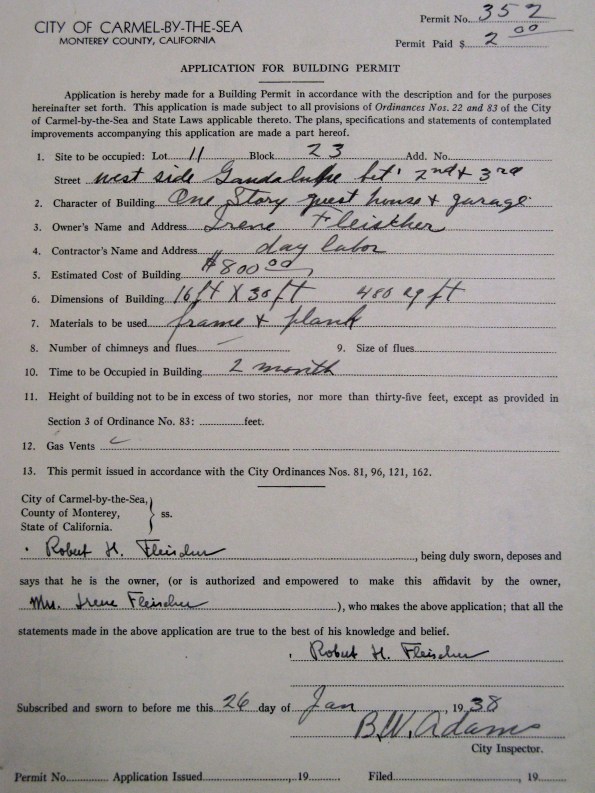 CITY OF CARMEL-BY-THE-SEA
MONTEREY COUNTY, CALIFORNIA
Permit No. 352
Permit Paid $ 2 00
APPLICATION FOR BUILDING PERMIT
Application is hereby made for a Building Permit in accordance with the description and for the purposes
hereinafter set forth. This application is made subject to all provisions of Ordinances Nos. 22 and 83 of the City
of Carmel-by-the-Sea and State Laws applicable thereto. The plans, specifications and statements of contemplated
improvements accompanying this application are made a part hereof.
1. Site to be occupied: Lot 11 Block 23 Add. No.
Street west side bet' 2nd & 3rd
2. Character of Building One Story guest house & garage
3. Owner's Name and Address Irene Fleischer
4. Contractor's Name and Address day labor
5. Estimated Cost of Building $800 00
6. Dimensions of Building 16 ft X 30 ft 480 sq ft
7. Materials to be used frame & plank
8. Number of chimneys and flues 9. Size of flues
10. Time to be Occupied in Building 2 month
11. Height of building not to be in excess of two stories, nor more than thirty-five feet, except as provided in
Section 3 of Ordinance No. 83: feet.
12. Gas Vents
13. This permit issued in accordance with the City Ordinances Nos. 81, 96, 121, 162.
City of Carmel-by-the-Sea,
County of Monterey, } ss.
State of California.
Robert H. Fleischer, being duly sworn, deposes and
says that he is the owner, (or is authorized and empowered to make this affidavit by the owner,
Mrs. Irene Fleischer), who makes the above application; that all the
statements made in the above application are true to the best of his knowledge and belief.
Robert H. Fleischer
Subscribed and sworn to before me this 26 day of Jan, 1938
B.W. Adams
City Inspector.
Permit No. Application Issued, 19 Filed, 19